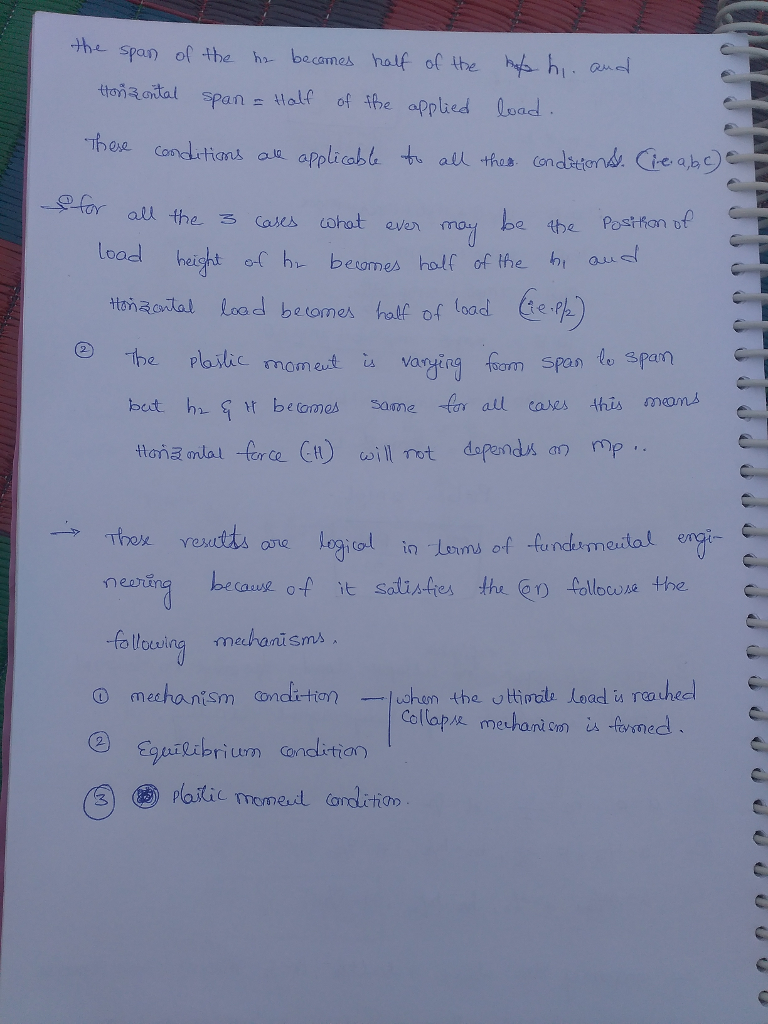 the span of the h2 becomes half of the h1. and
Horizontal span = Half of the applied load.
These conditions are applicable to all thes conditions. (i.e a,b,c)
→ ① for all the 3 cases what ever may be the Position of
load height of h2 becomes half of the h1 and
Horizontal load becomes half of load (i.e. P/2)
② The plastic moment is varying from span to span
but h2 & H becomes same for all cases this means
Horizontal force (H) will not depends on mp..
→ These results are logical in terms of fundemental engi-
neering because of it satisfies the (or) followse the
following mechanisms.
① mechanism condition — when the ultimate load is reached
collapse mechanism is formed.
② Equilibrium condition
③ plastic moment condition.